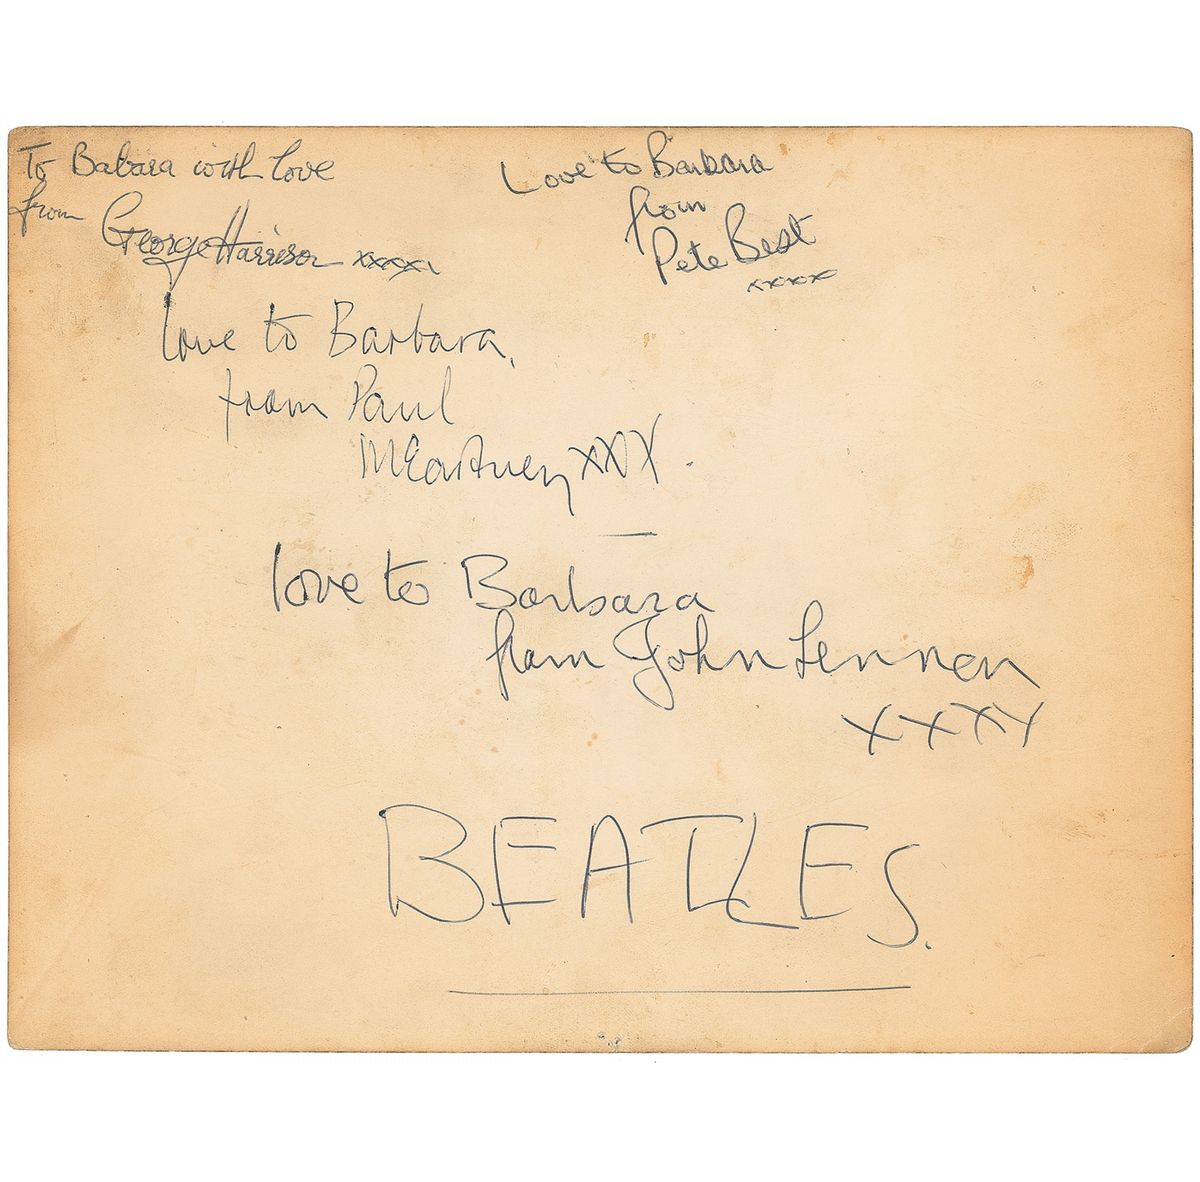 To Babara with love
from George Harrison xxxxx
Love to Barbara
from
Pete Best
xxxx
love to Barbara,
from Paul
McCartney XXX.
love to Barbara
from John Lennon
XXXX
BEATLES.